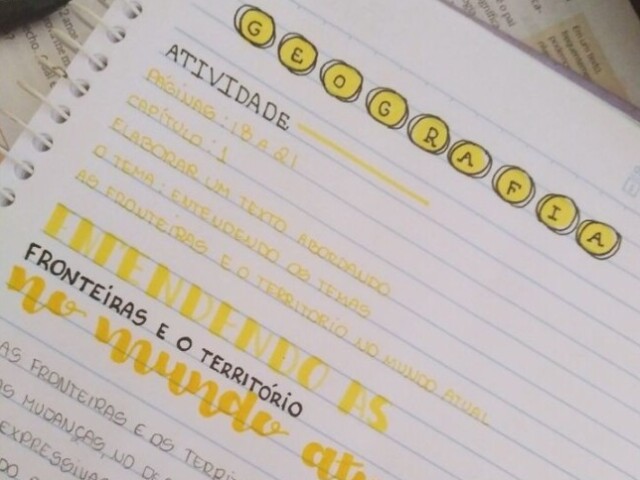 GEOGRAFIA
ATIVIDADE
PÁGINAS : 18 A 21
CAPÍTULO : 1
ELABORAR UM TEXTO ABORDANDO
O TEMA : ENTENDENDO OS TEMAS
AS FRONTEIRAS E O TERRITÓRIO NO MUNDO ATUAL
ENTENDENDO AS
FRONTEIRAS E O TERRITÓRIO
no mundo atu
AS FRONTEIRAS E OS TERRI
AS MUDANÇAS, NO DE
EXPRESSIVA